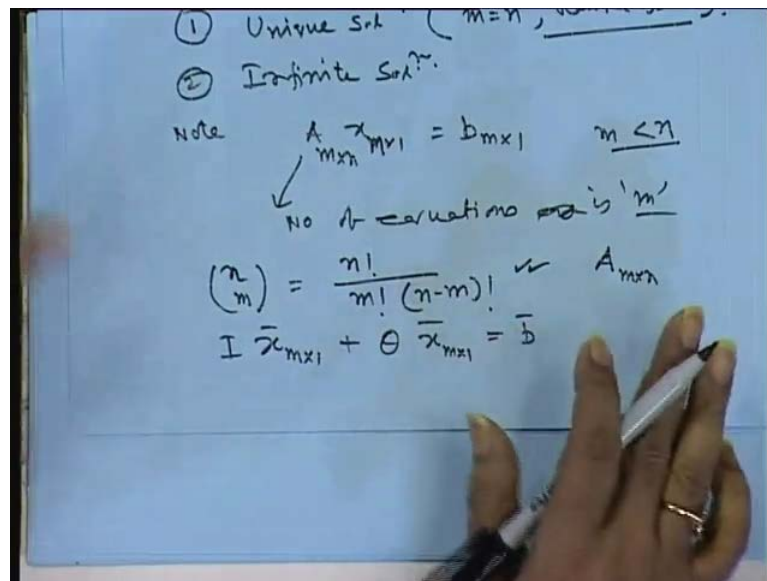 ① Unique Solⁿ ( m=n ,
② Infinite Solⁿ.
Note A_{m×n} x_{m×1} = b_{m×1} m < n
No of equations is 'm'
(n m) = n! / m! (n-m)! ✓✓ A_{m×n}
I x̄_{m×1} + θ x̄_{m×1} = b̄